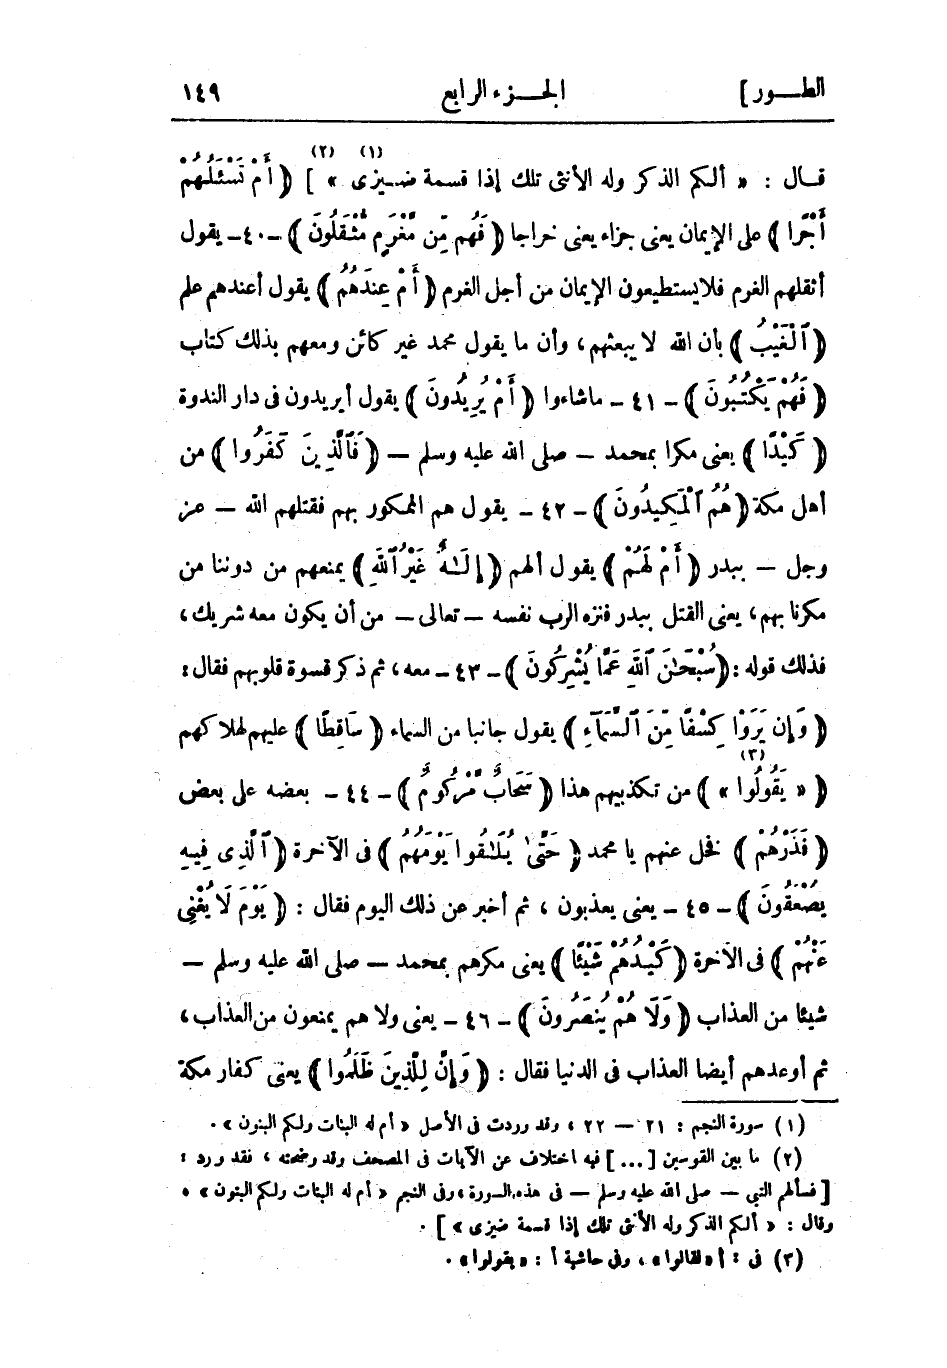 الطور] الجزء الرابع ١٤٩
قال : « ألكم الذكر وله الأنثى تلك إذا قسمة ضيزى (١) » ] (٢) ﴿ أَمْ تَسْئَلُهُمْ
أَجْرًا ﴾ على الإيمان يعنى جزاء يعنى خراجا ﴿ فَهُم مِّن مَّغْرَمٍ مُّثْقَلُونَ ﴾ -٤٠- يقول
أثقلهم الغرم فلا يستطيعون الإيمان من أجل الغرم ﴿ أَمْ عِندَهُمُ ﴾ يقول أعندهم علم
﴿ ٱلْغَيْبُ ﴾ بأن الله لا يبعثهم، وأن ما يقول محمد غير كائن ومعهم بذلك كتاب
﴿ فَهُمْ يَكْتُبُونَ ﴾ - ٤١ - ماشاءوا ﴿ أَمْ يُرِيدُونَ ﴾ يقول أيريدون فى دار الندوة
﴿ كَيْدًا ﴾ يعنى مكرا بمحمد — صلى الله عليه وسلم — ﴿ فَٱلَّذِينَ كَفَرُوا ﴾ من
أهل مكة ﴿ هُمُ ٱلْمَكِيدُونَ ﴾ - ٤٢ - يقول هم الممكور بهم فقتلهم الله — عز
وجل — ببدر ﴿ أَمْ لَهُمْ ﴾ يقول ألهم ﴿ إِلَـٰهٌ غَيْرُ ٱللَّهِ ﴾ يمنعهم من دوننا من
مكرنا بهم، يعنى القتل ببدر فنزه الرب نفسه — تعالى — من أن يكون معه شريك،
فذلك قوله : ﴿ سُبْحَـٰنَ ٱللَّهِ عَمَّا يُشْرِكُونَ ﴾ - ٤٣ - معه، ثم ذكر قسوة قلوبهم فقال:
﴿ وَإِن يَرَوْا كِسْفًا مِّنَ ٱلسَّمَآءِ ﴾ يقول جانبا من السماء ﴿ سَاقِطًا ﴾ عليهم لهلاكهم
﴿ « يَقُولُوا » (٣) ﴾ من تكذيبهم هذا ﴿ سَحَابٌ مَّرْكُومٌ ﴾ - ٤٤ - بعضه على بعض
﴿ فَذَرْهُمْ ﴾ فخل عنهم يا محمد ﴿ حَتَّىٰ يُلَـٰقُوا يَوْمَهُمُ ﴾ فى الآخرة ﴿ ٱلَّذِى فِيهِ
يُصْعَقُونَ ﴾ - ٤٥ - يعنى يعذبون ، ثم أخبر عن ذلك اليوم فقال : ﴿ يَوْمَ لَا يُغْنِى
عَنْهُمْ ﴾ فى الآخرة ﴿ كَيْدُهُمْ شَيْئًا ﴾ يعنى مكرهم بمحمد — صلى الله عليه وسلم —
شيئا من العذاب ﴿ وَلَا هُمْ يُنصَرُونَ ﴾ - ٤٦ - يعنى ولا هم يمنعون من العذاب،
ثم أوعدهم أيضا العذاب فى الدنيا فقال : ﴿ وَإِنَّ لِلَّذِينَ ظَلَمُوا ﴾ يعنى كفار مكة
(١) سورة النجم : ٢١ — ٢٢ ، وقد وردت فى الأصل « أم له البنات ولكم البنون » .
(٢) ما بين القوسين [ ... ] فيه اختلاف عن الآيات فى المصحف وقد وضحته ، فقد ورد :
[ فسألهم النبى — صلى الله عليه وسلم — فى هذه السورة ، وفى النجم « أم له البنات ولكم البنون » ،
وقال : « ألكم الذكر وله الأنثى تلك إذا قسمة ضيزى » ] .
(٣) فى : أ «لقالوا» ، وفى حاشية أ : «يقولوا» .